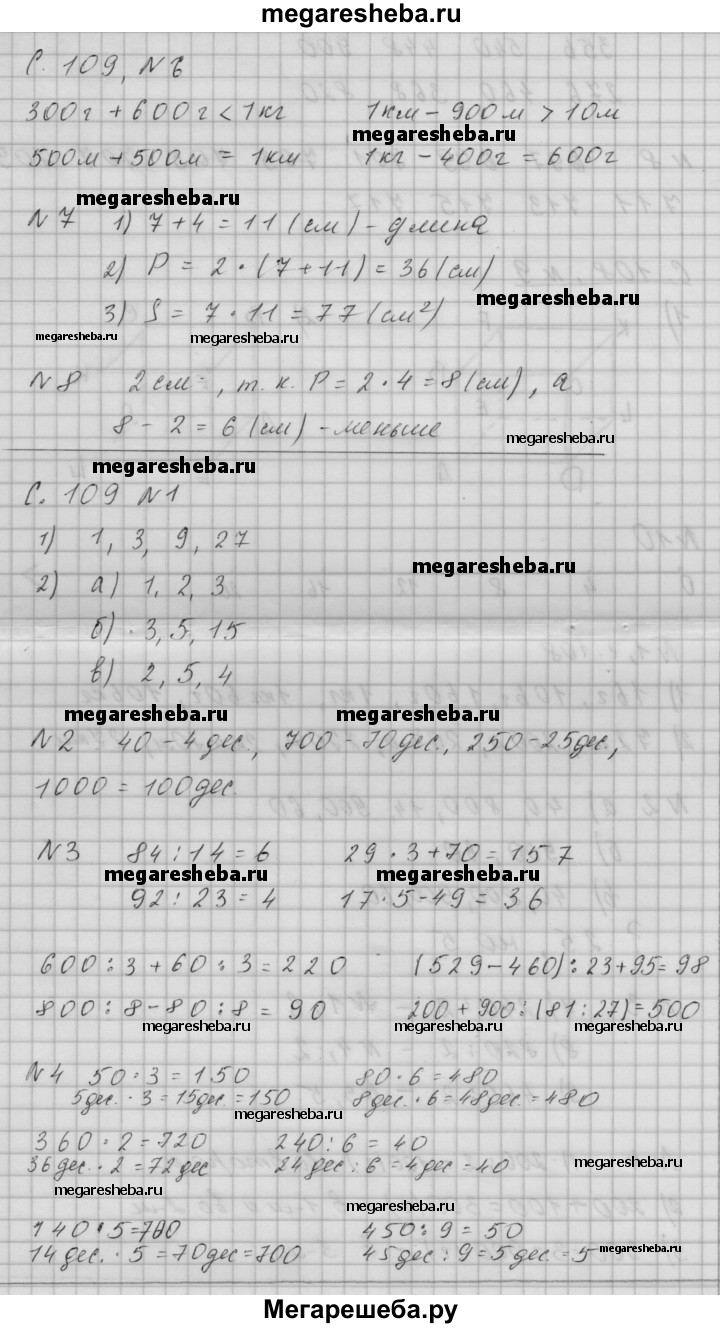 megaresheba.ru
С. 109, № 6
300г + 600г < 1кг 1км − 900м > 10м
megaresheba.ru
500м + 500м = 1км 1кг − 400г = 600г
megaresheba.ru
№ 7 1) 7 + 4 = 11 (см) − длина
2) P = 2 · (7 + 11) = 36 (см)
megaresheba.ru
3) S = 7 · 11 = 77 (см²)
megaresheba.ru megaresheba.ru
№ 8 2 см , т. к. P = 2 · 4 = 8 (см), а
8 − 2 = 6 (см) − меньше
megaresheba.ru
megaresheba.ru
С. 109 № 1
1) 1, 3, 9, 27
megaresheba.ru
2) а) 1, 2, 3
б) 3, 5, 15
в) 2, 5, 4
megaresheba.ru megaresheba.ru
№ 2 40 − 4 дес., 700 − 70 дес., 250 − 25 дес.,
1000 = 100 дес.
№ 3 84 : 14 = 6 29 · 3 + 70 = 157
megaresheba.ru megaresheba.ru
92 : 23 = 4 17 · 5 − 49 = 36
600 : 3 + 60 : 3 = 220 (529 − 460) : 23 + 95 = 98
800 : 8 − 80 : 8 = 90 200 + 900 : (81 : 27) = 500
megaresheba.ru megaresheba.ru megaresheba.ru
№ 4 50 · 3 = 150 80 · 6 = 480
5 дес. · 3 = 15 дес = 150 8 дес. · 6 = 48 дес. = 480
megaresheba.ru
360 · 2 = 720 240 : 6 = 40
36 дес. · 2 = 72 дес 24 дес : 6 = 4 дес = 40
megaresheba.ru
megaresheba.ru
megaresheba.ru
140 · 5 = 700 450 : 9 = 50
14 дес. · 5 = 70 дес = 700 45 дес : 9 = 5 дес = 5
megaresheba.ru
Мегарешеба.ру